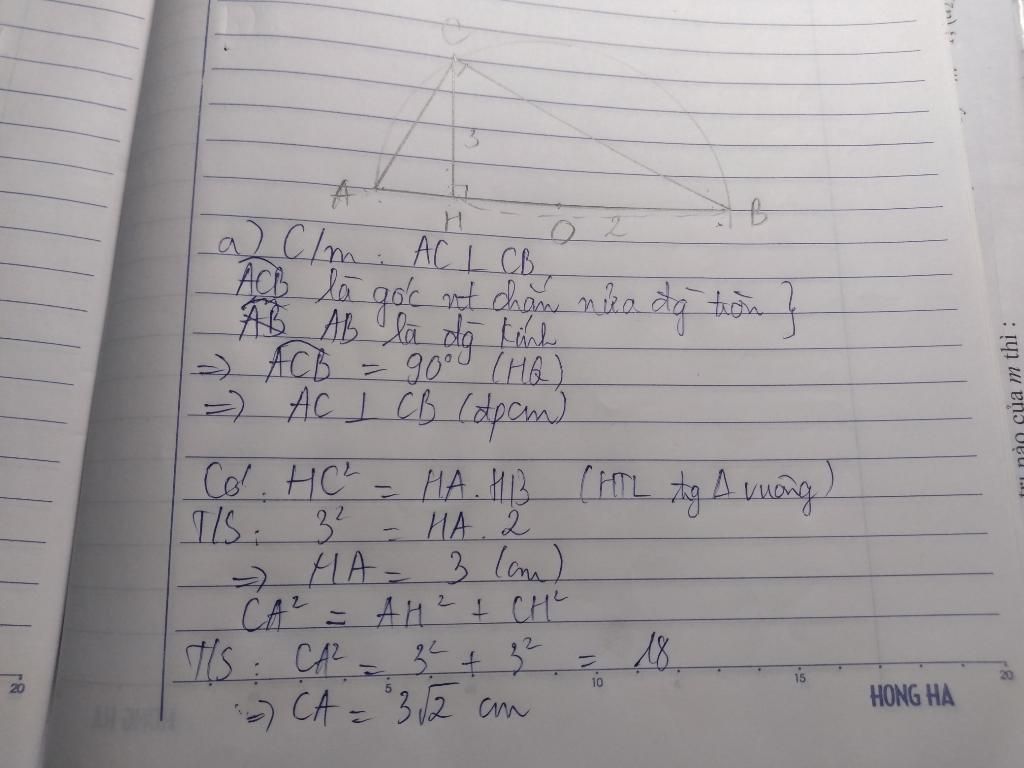 C
3
A
H
O
2
B
a) C/m : AC ⊥ CB
ACB là góc nt chắn nửa đg tròn }
AB AB là đg kính
=> ACB = 90° (HQ)
=> AC ⊥ CB (đpcm)
Có : HC² = HA.HB (HTL tg Δ vuông)
T/S : 3² = HA . 2
=> HA = 3 (cm)
CA² = AH² + CH²
T/S : CA² = 3² + 3² = 18
=> CA = 3√2 cm
20
5
10
15
20
HONG HA
HONG HA
nào của m thì :